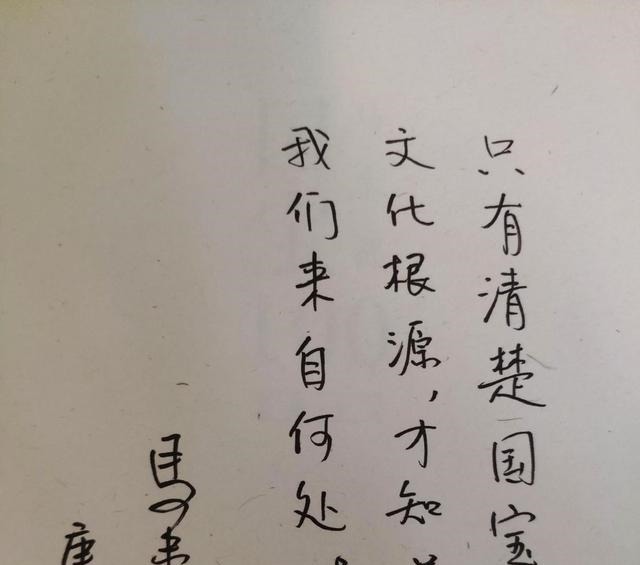 只有清楚国宝
文化根源，才知
我们来自何处